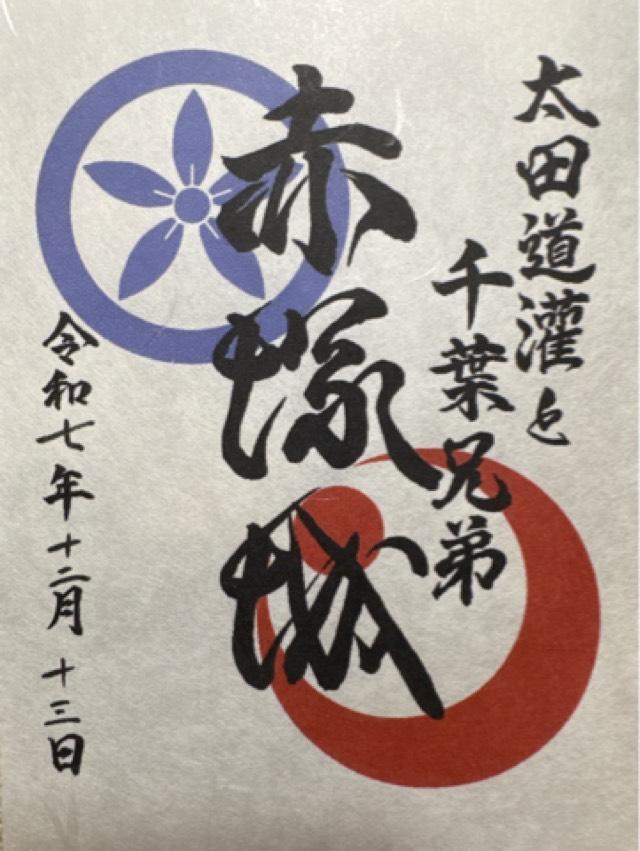 太田道灌と
千葉兄弟
赤塚城
令和七年十二月十三日